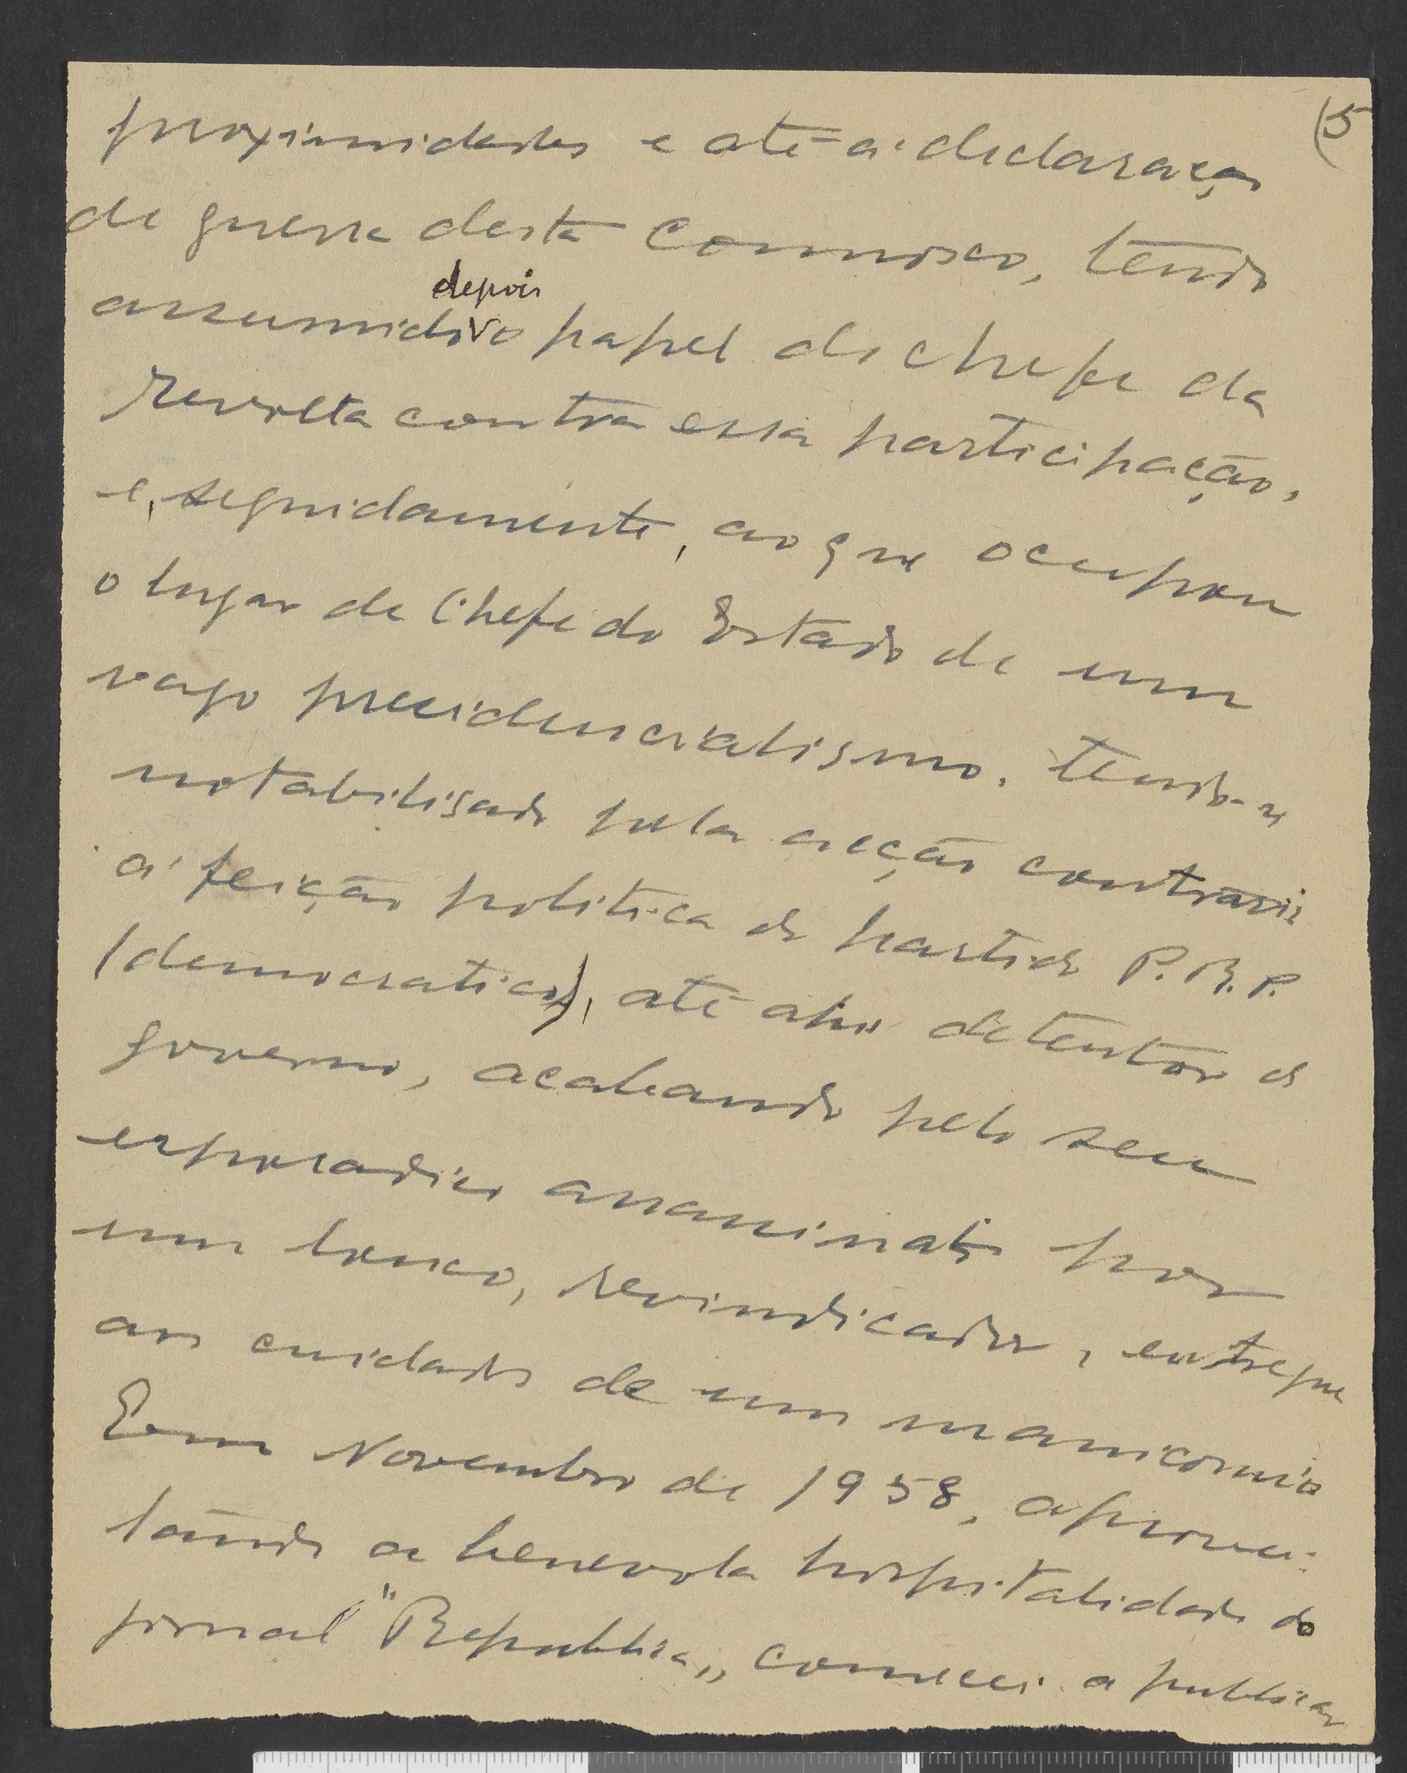 (5
proximidades e até à declaração
de guerra desta connosco, tendo
depois
assumido o papel de chefe da
revolta contra essa participação,
e, seguidamente, ao que ocupou
o lugar de Chefe do Estado de um
vago presidencialismo, tendo-se
notabilisado pela acção contrária
á feição politica do partido P.R.P.
(democratico), até ahi detentor do
governo, acabando pelo seu
esporadico assassinato por
um louco, revindicador, entregue
aos cuidados de um manicomio
Em Novembro de 1958, aprovei-
tando a benevola hospitalidade do
jornal "Republica", comecei a publicar